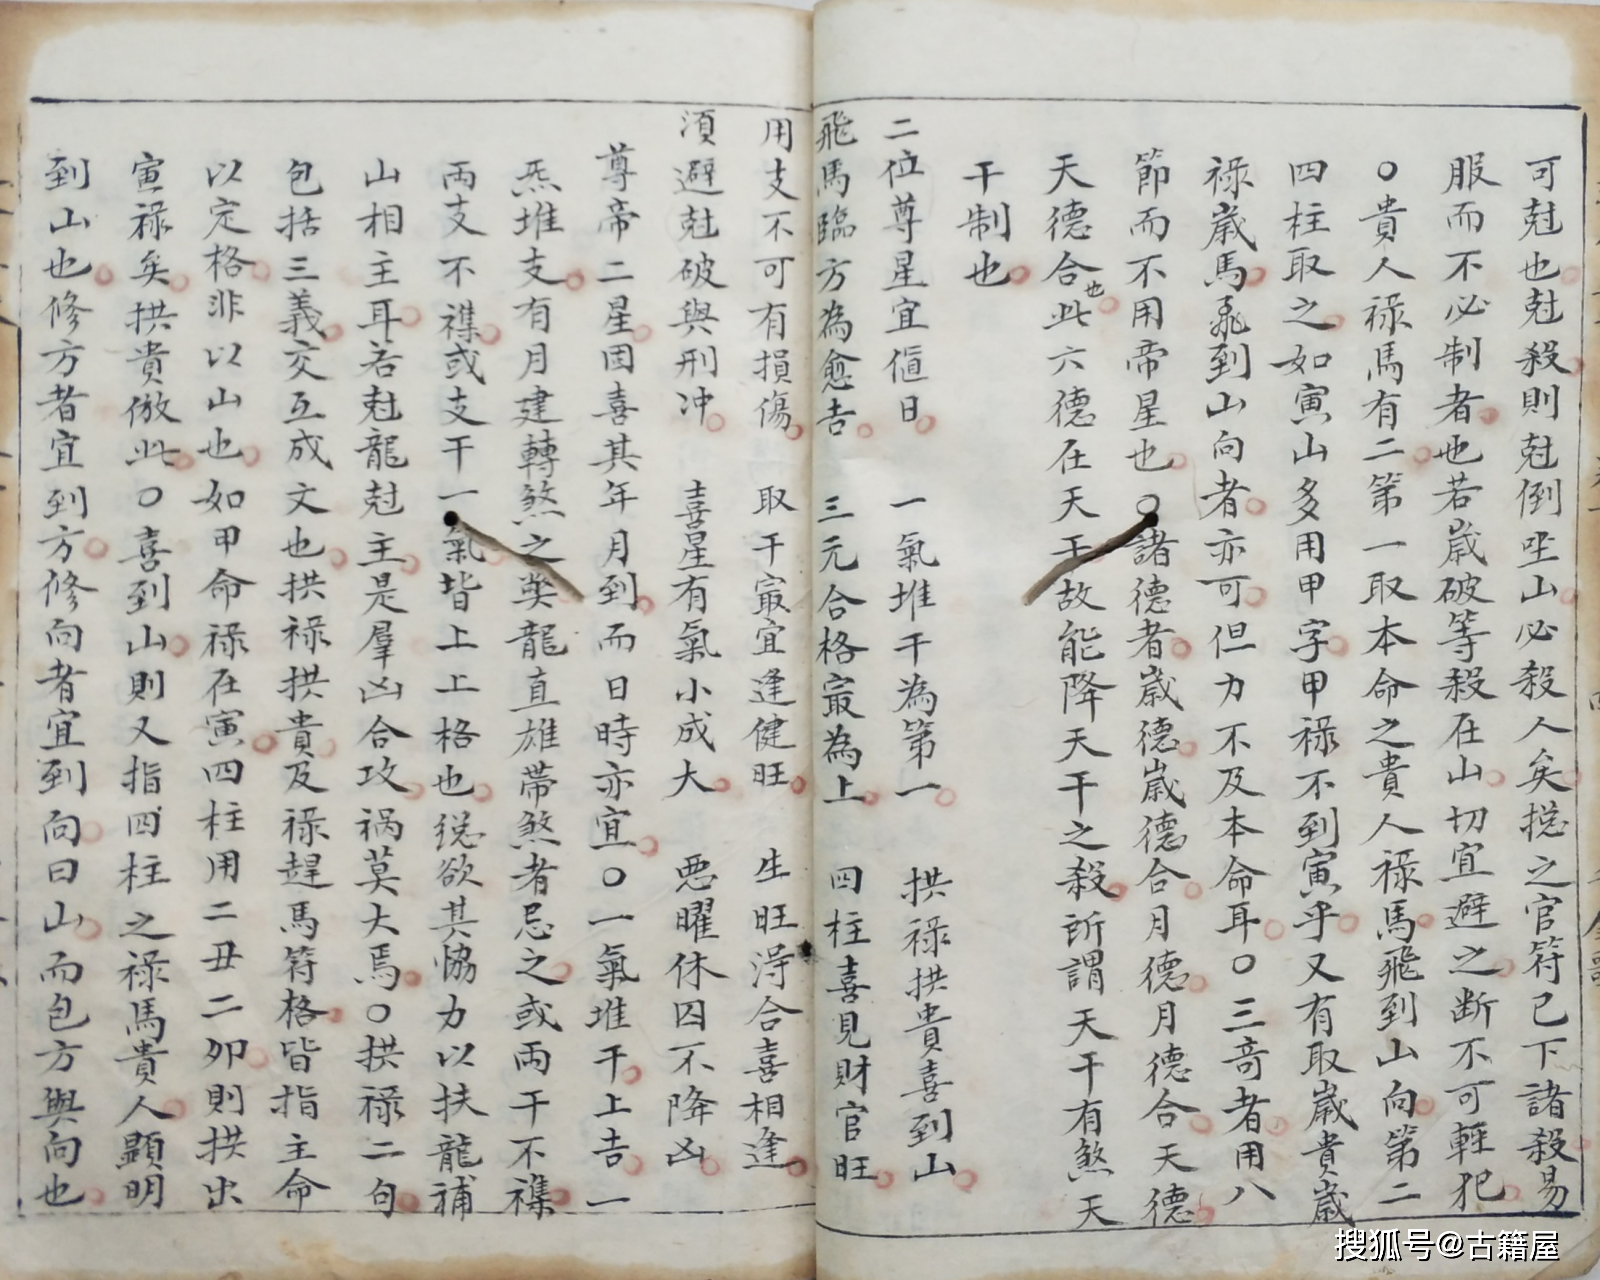 可尅也尅殺則尅倒坐山必殺人矣揔之官符已下諸殺易
服而不必制者也若歲破等殺在山切宜避之断不可輕犯
○貴人祿馬有二第一取本命之貴人祿馬飛到山向第二
四柱取之如寅山多用甲字甲祿不到寅乎又有取歲貴歲
祿歲馬飛到山向者亦可但力不及本命耳○三竒者用八
節而不用帝星也○諸德者歲德歲德合月德月德合天德
天德合也此六德在天王故能降天干之殺所謂天干有煞天
干制也
二位尊星宜值日 一氣堆干為第一 拱祿拱貴喜到山
飛馬臨方為愈吉 三元合格㝡為上 四柱喜見財官旺
用支不可有損傷 取干㝡宜逢健旺 生旺淂合喜相逢
湏避尅破與刑冲 喜星有氣小成大 惡曜休囚不降凶
尊帝二星固喜其年月到而日時亦宜○一氣堆干上吉一
炁堆支有月建轉煞之獘龍直雄帶煞者忌之或兩干不襍
兩支不襍或支干一氣皆上上格也縂欲其恊力以扶龍補
山相主耳若尅龍尅主是羣凶合攻禍莫大焉○拱祿二句
包括三義交互成文也拱祿拱貴及祿趕馬符格皆指主命
以定格非以山也如甲命祿在寅四柱用二丑二夘則拱出
寅祿矣拱貴倣此○喜到山則又指四柱之祿馬貴人顯明
到山也修方者宜到方修向者宜到向曰山而包方與向也
搜狐号@古籍屋